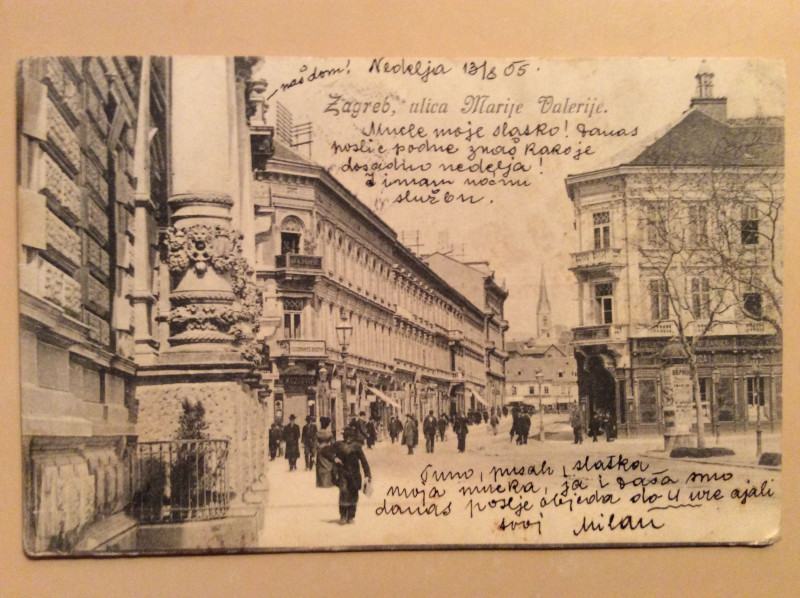 naš dom! Nedelja 13/8 05.
Zagreb, ulica Marije Valerije.
Mucle moje slatko! Danas
poslije podne znaš kako je
dosadno nedelja!
I imam noćnu
službu.
Puno, pusah, slatka
moja mucka, ja i Daša smo
danas poslje objeda do 4 ure
tvoj Milan